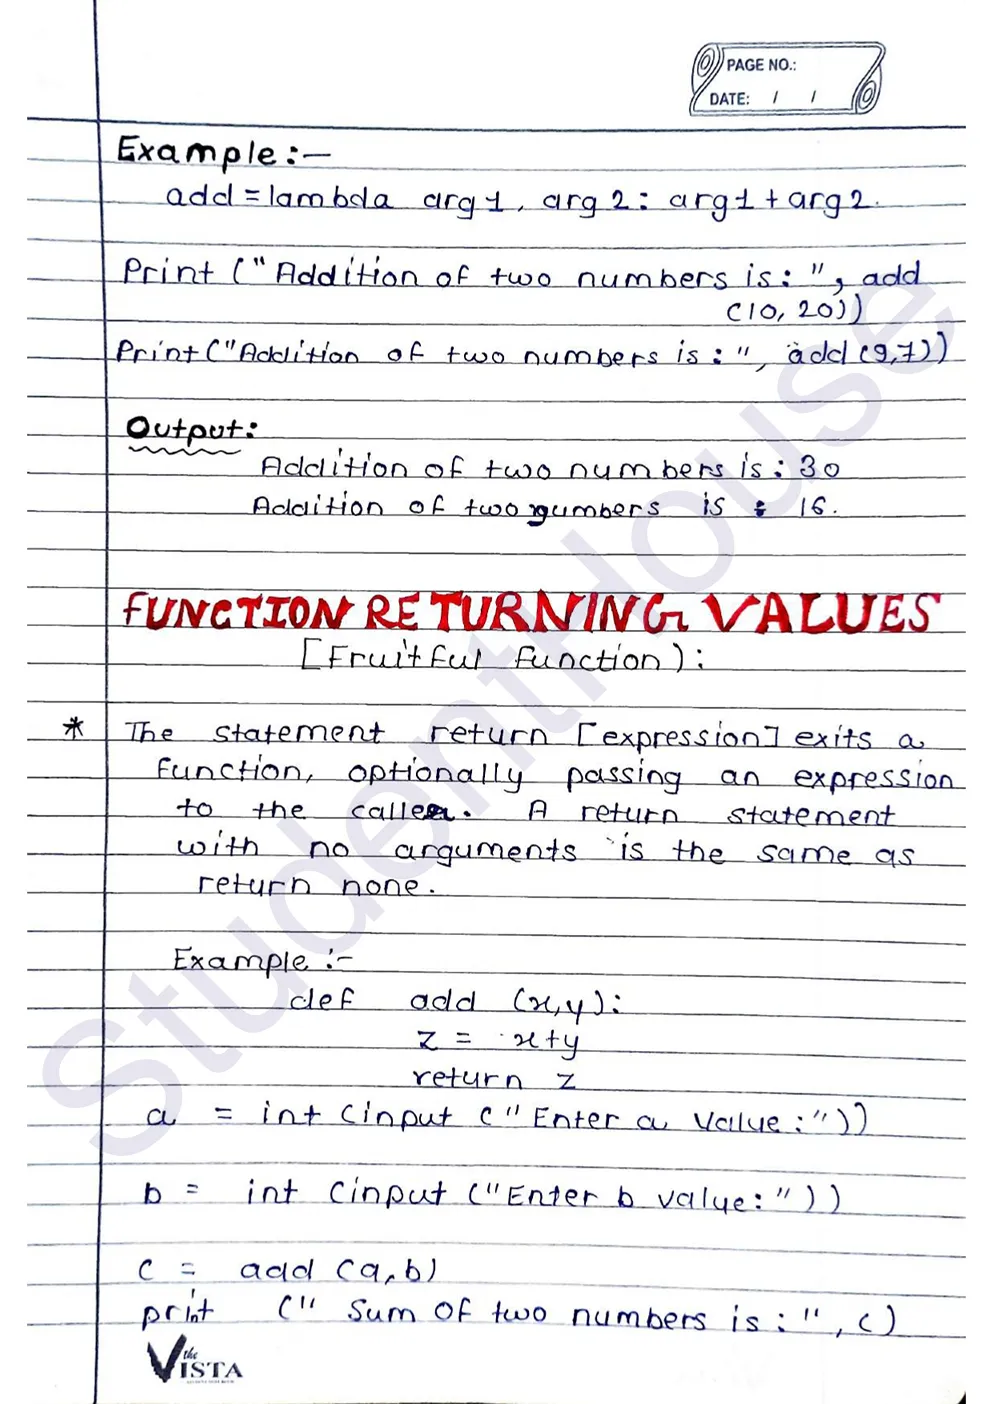 PAGE NO.:
DATE: / /
Example:-
add = lambda arg1, arg2: arg1 + arg2.
Print ("Addition of two numbers is:", add
(10, 20))
Print ("Addition of two numbers is:", add (9,7))
Output:
Addition of two numbers is: 30
Addition of two numbers is : 16.
FUNCTION RETURNING VALUES
[Fruitful Function):
* The statement return [expression] exits a
function, optionally passing an expression
to the caller. A return statement
with no arguments is the same as
return none.
Example :-
def add (x,y):
z = x+y
return z
a = int (input ("Enter a value:"))
b = int (input ("Enter b value:"))
c = add (a,b)
print (" Sum of two numbers is:", c)
the
VISTA
StudentHouse